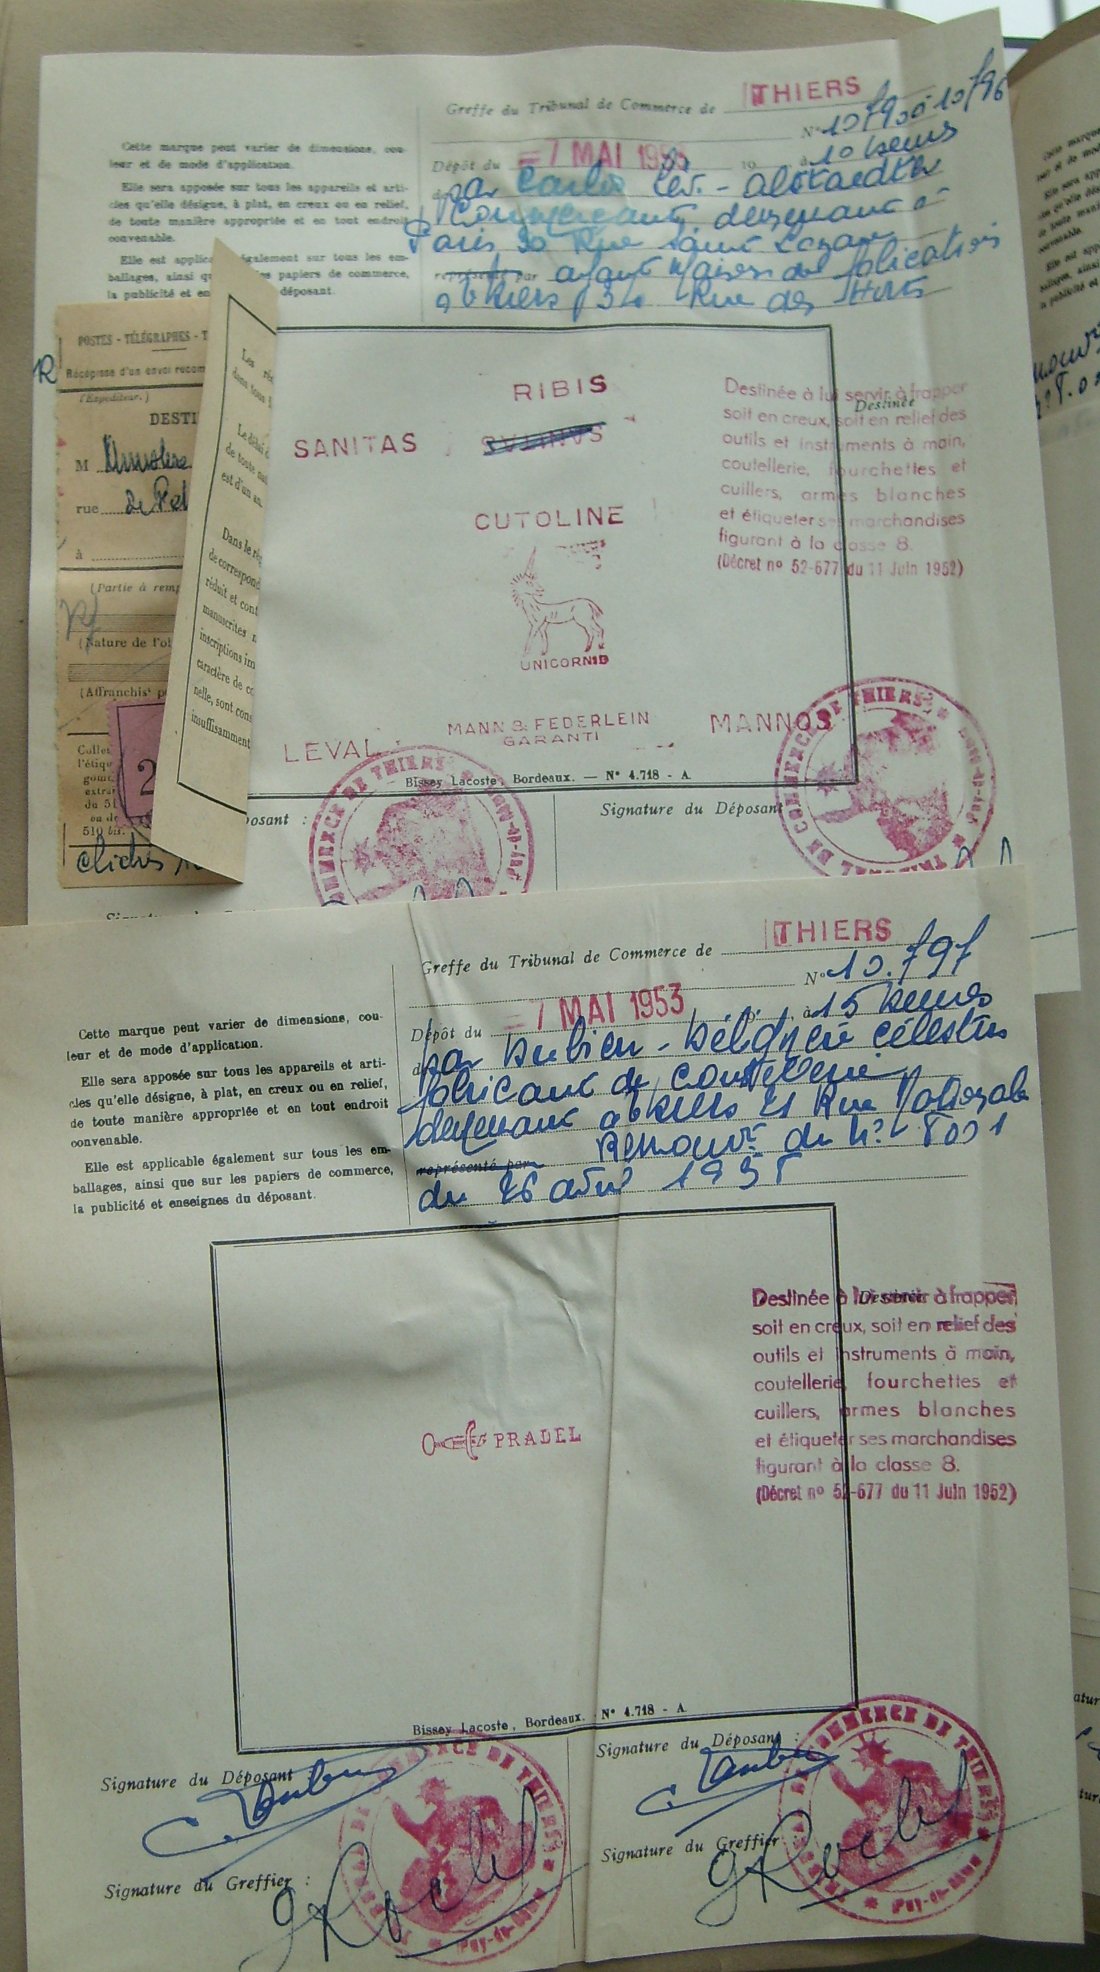 Greffe du Tribunal de Commerce de THIERS
N° 10790 à 10796
Cette marque peut varier de dimensions, cou-
leur et de mode d'application.
Elle sera apposée sur tous les appareils et arti-
cles qu'elle désigne, à plat, en creux ou en relief,
de toute manière appropriée et en tout endroit
convenable.
Elle est applica également sur tous les em-
ballages, ainsi qu les papiers de commerce,
la publicité et en déposant.
Dépôt du = 7 MAI 195 à 10 heures
par Carlos
Commerçant, demeurant à
Paris 90 Rue Saint Lazare
représenté par ayant maison de fabrication
à Thiers, 34 Rue des
POSTES - TÉLÉGRAPHES - T
Récépissé d'un envoi recom
(Expéditeur.)
DESTI
M
rue de
à
(Partie à remp
(Nature de l'ob
(Affranchis' p
Collet
l'étiqu
gomm
extrai
du 51
ou de
510 bis.
clichés
Les réc
dans tous l
Le délai d
de toute
est d'un an.
Dans le rég
de correspond
réduit et cont
manuscrites n
inscriptions im
caractère de co
nelle, sont cons
insuffisamment
RIBIS
SANITAS
CUTOLINE
UNICORNIB
LEVAL
MANN & FEDERLEIN
GARANTI
MANNOS
Destinée
Destinée à lui servir à frapper
soit en creux, soit en relief des
outils et instruments à main,
coutellerie, fourchettes et
cuillers, armes blanches
et étiqueter ses marchandises
figurant à la classe 8.
(Décret n° 52-677 du 11 Juin 1952)
Bissey Lacoste, Bordeaux. — N° 4.718 - A
posant :
Signature du Déposant
COMMERCE DE THIERS
TRIBUNAL DE COMMERCE DE THIERS
Puy-de-Dôme
Greffe du Tribunal de Commerce de THIERS
N° 10.797
Cette marque peut varier de dimensions, cou-
leur et de mode d'application.
Elle sera apposée sur tous les appareils et arti-
cles qu'elle désigne, à plat, en creux ou en relief,
de toute manière appropriée et en tout endroit
convenable.
Elle est applicable également sur tous les em-
ballages, ainsi que sur les papiers de commerce,
la publicité et enseignes du déposant.
Dépôt du = 7 MAI 1953 à 15 heures
par
fabricant de coutellerie
demeurant à Thiers 21 Rue Nationale
représenté par Renouvt du N° 7001
du 26 avril 193
PRADEL
Destinée
Destinée à lui servir à frapper
soit en creux, soit en relief des
outils et instruments à main,
coutellerie, fourchettes et
cuillers, armes blanches
et étiqueter ses marchandises
figurant à la classe 8.
(Décret n° 52-677 du 11 Juin 1952)
Bissey Lacoste, Bordeaux. N° 4.718 - A
Signature du Déposant
Signature du Déposant :
Signature du Greffier :
Signature du Greffier :
TRIBUNAL DE COMMERCE DE THIERS
Puy-de-Dôme
TRIBUNAL DE COMMERCE DE THIERS
Puy-de-Dôme